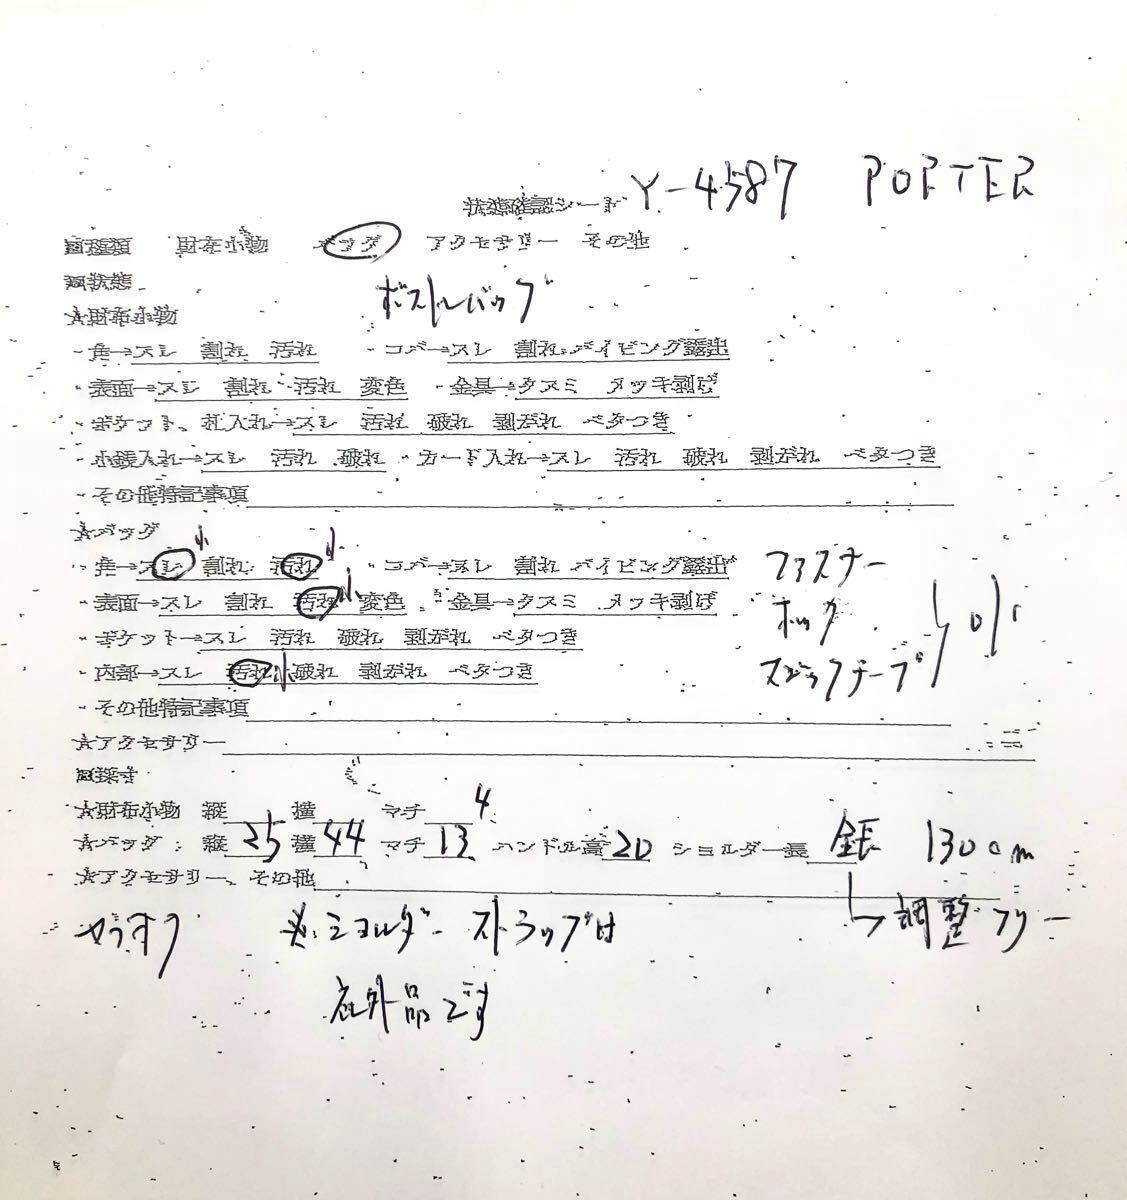 Y-4587 PORTER
状態確認シート
■種類 財布小物 バッグ アクセサリー その他
■状態
ボストンバッグ
★財布小物
・角→スレ 割れ 汚れ ・コバ→スレ 割れ パイピング露出
・表面→スレ 割れ 汚れ 変色 ・金具→クスミ メッキ剥げ
・ポケット、札入れ→スレ 汚れ 破れ 剥がれ ベタつき
・小銭入れ→スレ 汚れ 破れ ・カード入れ→スレ 汚れ 破れ 剥がれ ベタつき
・その他特記事項
★バッグ
小 小
・角→スレ 割れ 汚れ ・コバ→スレ 割れ パイピング露出 ファスナー
・表面→スレ 割れ 汚れ 小 変色 ・金具→クスミ メッキ剥げ ホック
・ポケット→スレ 汚れ 破れ 剥がれ ベタつき
・内部→スレ 汚れ 小 破れ 剥がれ ベタつき マジックテープ
・その他特記事項
★アクセサリー
■採寸
★財布小物 縦 横 マチ 4
★バッグ:縦 25 横 44 マチ 13 ハンドル高 20 ショルダー長 全長 130cm
★アクセサリー、その他
※ショルダーストラップは
↳調整フリー
社外品です